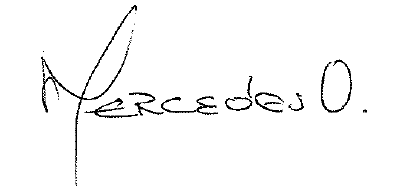 Mercedes O.